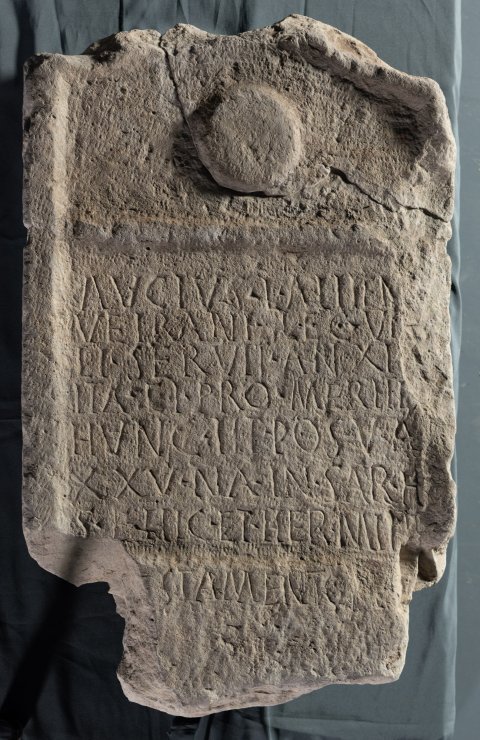 AVCTVS·VALLEN
VETRANI·LEG·VI
ET SERVIT·AN XI
ITA·Q·PRO·MERITI
HVNC·TIT·POSV·A
XXV·NA·IN·SARH
S·E·HIC·ET·HER·MIN
STAMENTO